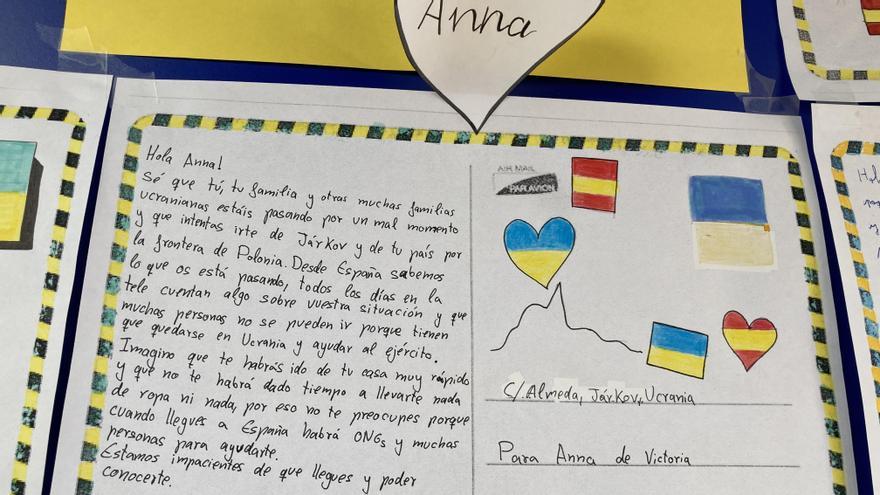 Anna
Hola Anna!
Sé que tú, tu familia y otras muchas familias
ucranianas estáis pasando por un mal momento
y que intentas irte de Járkov y de tu país por
la frontera de Polonia. Desde España sabemos
lo que os está pasando, todos los días en la
tele cuentan algo sobre vuestra situación y que
muchas personas no se pueden ir porque tienen
que quedarse en Ucrania y ayudar al ejército.
Imagino que te habrás ido de tu casa muy rápido
y que no te habrá dado tiempo a llevarte nada
de ropa ni nada, por eso no te preocupes porque
cuando llegues a España habrá ONGs y muchas
personas para ayudarte.
Estamos impacientes de que llegues y poder
conocerte.
AIR MAIL
PAR AVION
C/. Almeda, Járkov, Ucrania
Para Anna de Victoria